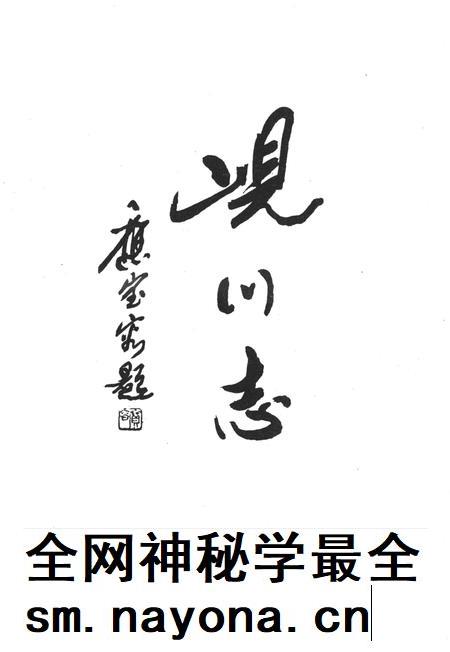 峴川志
應宝容题
全网神秘学最全
sm.nayona.cn